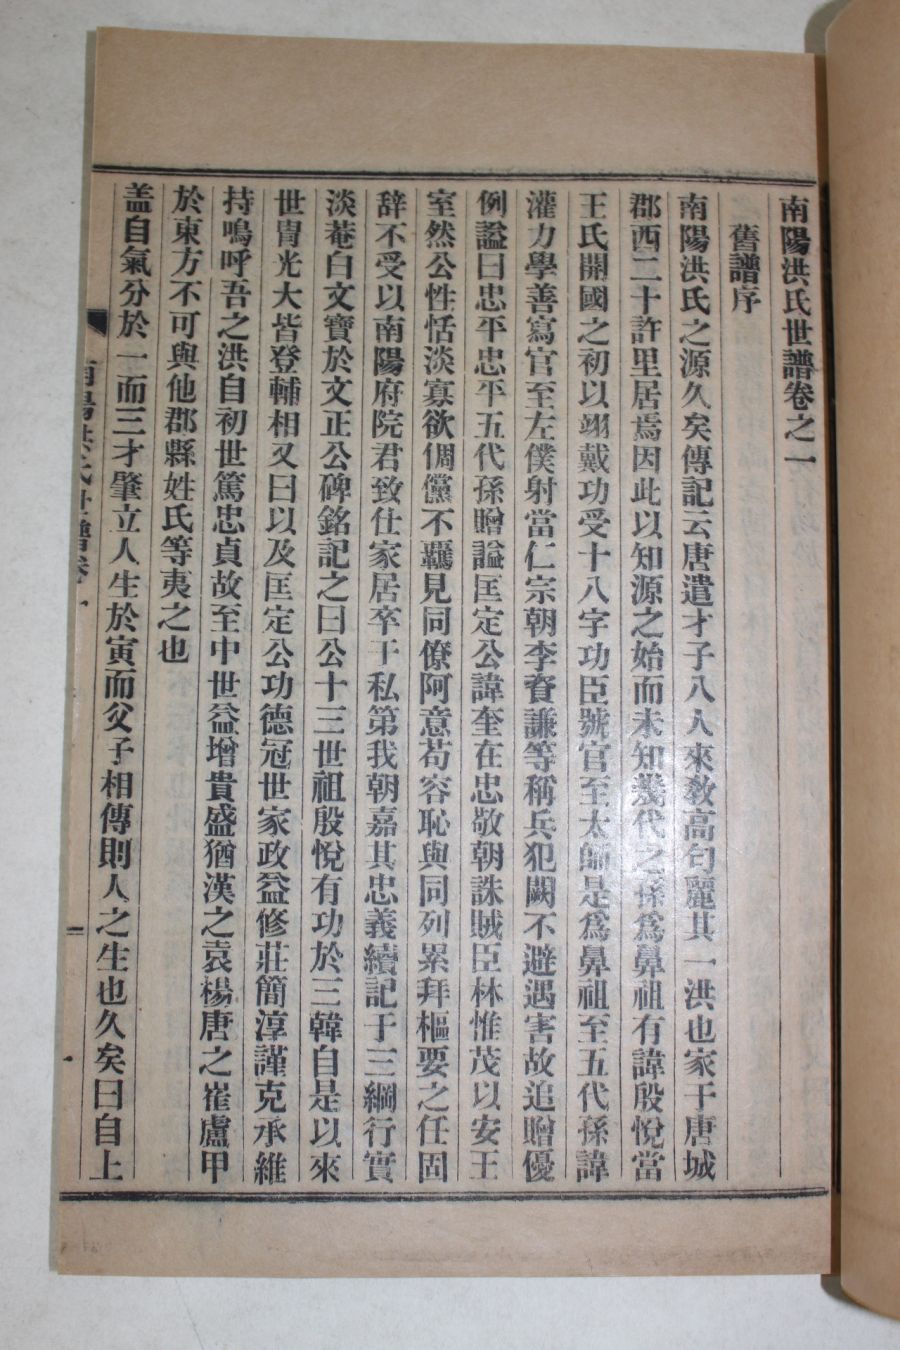 南陽洪氏世譜卷之一
舊譜序
南陽洪氏之源久矣傳記云唐遣才子八人來敎高句麗其一洪也家于唐城
郡西二十許里居焉因此以知源之始而未知幾代之孫爲鼻祖有諱殷悅當
王氏開國之初以翊戴功受十八字功臣號官至太師是爲鼻祖至五代孫諱
灌力學善寫官至左僕射當仁宗朝李資謙等稱兵犯闕不避遇害故追贈優
例謚曰忠平忠平五代孫贈謚匡定公諱奎在忠敬朝誅賊臣林惟茂以安王
室然公性恬淡寡欲倜儻不羈見同僚阿意苟容恥與同列累拜樞要之任固
辞不受以南陽府院君致仕家居卒于私第我朝嘉其忠義續記于三綱行實
淡菴白文寶於文正公碑銘記之曰公十三世祖殷悅有功於三韓自是以來
世冑光大皆登輔相又曰以及匡定公功德冠世家政益修莊簡淳謹克承維
持嗚呼吾之洪自初世篤忠貞故至中世益增貴盛猶漢之袁楊唐之崔盧甲
於東方不可與他郡縣姓氏等夷之也
盖自氣分於一而三才肇立人生於寅而父子相傳則人之生也久矣曰自上
南陽洪氏世譜卷一
一